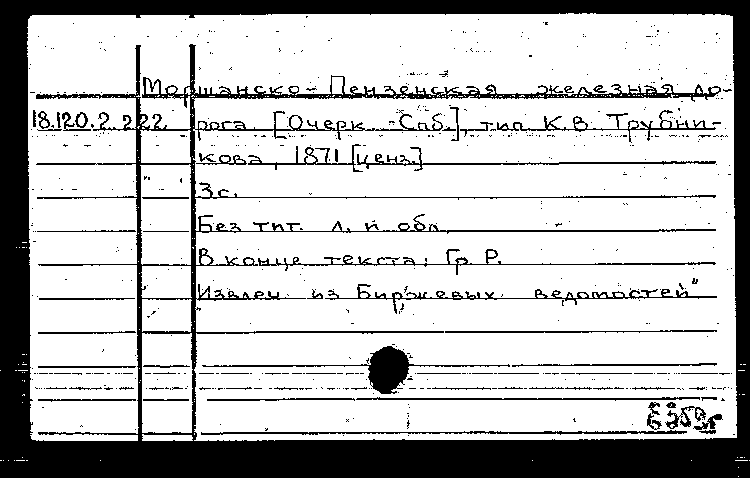 Моршанско-Пензенская железная до-
18.120.2.222. рога. [Очерк. Спб.], тип К.В. Трубни-
кова, 1871 [ценз.]
3с.
Без тит. л. и обл.
В конце текста: Гр. Р.
Извлеч. из Биржевых ведомостей"